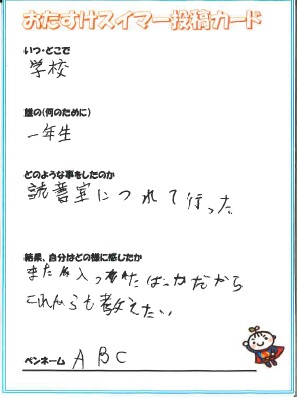 おたすけスイマー投稿カード
いつ・どこで
学校
誰の(何のために)
一年生
どのような事をしたのか
読書室につれて行った
結果、自分はどの様に感じたか
まだ入ったばっかだから
これからも教えたい
ペンネーム ABC